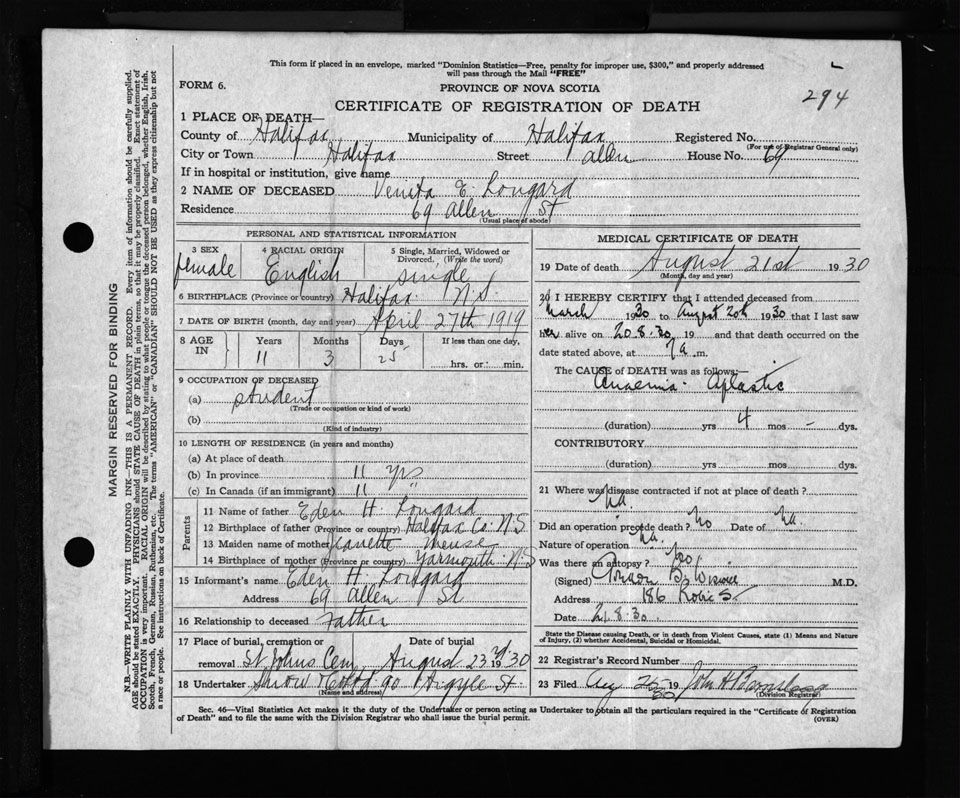 This form if placed in an envelope, marked "Dominion Statistics—Free, penalty for improper use, $300," and properly addressed
will pass through the Mail "FREE"
FORM 6.
PROVINCE OF NOVA SCOTIA
294
CERTIFICATE OF REGISTRATION OF DEATH
1 PLACE OF DEATH—
County of Halifax Municipality of Halifax Registered No.
(For use of Registrar General only)
City or Town Halifax Street Allen House No. 69
If in hospital or institution, give name
2 NAME OF DECEASED Venita E. Longard
Residence 69 Allen St
(Usual place of abode)
PERSONAL AND STATISTICAL INFORMATION
3 SEX 4 RACIAL ORIGIN 5 Single, Married, Widowed or
Divorced. (Write the word)
female English single
6 BIRTHPLACE (Province or country) Halifax N.S.
7 DATE OF BIRTH (month, day and year) April 27th 1919
8 AGE IN Years Months Days If less than one day,
11 3 25 hrs. or min.
9 OCCUPATION OF DECEASED
(a) student
(Trade or occupation or kind of work)
(b)
(Kind of industry)
10 LENGTH OF RESIDENCE (in years and months)
(a) At place of death
(b) In province 11 yrs
(c) In Canada (if an immigrant) 11 "
Parents
11 Name of father Eden H. Longard
12 Birthplace of father (Province or country) Halifax Co. N.S.
13 Maiden name of mother Jeanette Meuse
14 Birthplace of mother (Province or country) Yarmouth N.S
15 Informant's name Eden H. Longard
Address 69 Allen St
16 Relationship to deceased Father
17 Place of burial, cremation or Date of burial
removal St Johns Cem. August 23rd 1930
18 Undertaker Snow & Co Ltd 90 Argyle St
(Name and address)
MEDICAL CERTIFICATE OF DEATH
19 Date of death August 21st 1930
(Month, day and year)
20 I HEREBY CERTIFY that I attended deceased from
March 1930 to August 20th 1930 that I last saw
her alive on 20.8.30 19 and that death occurred on the
date stated above, at 7 a.m.
The CAUSE of DEATH was as follows:—
Anaemia - Aplastic
(duration) yrs 4 mos - dys.
CONTRIBUTORY
(duration) yrs mos dys.
21 Where was disease contracted if not at place of death?
na.
Did an operation precede death? no Date of na.
Nature of operation na.
Was there an autopsy? no
(Signed) M.D.
Address 186 Robie St.
Date 21.8.30.
State the Disease causing Death, or in death from Violent Causes, state (1) Means and Nature
of Injury, (2) whether Accidental, Suicidal or Homicidal.
22 Registrar's Record Number
23 Filed Aug 25 1930 John H Barnstead
(Division Registrar)
Sec. 46—Vital Statistics Act makes it the duty of the Undertaker or person acting as Undertaker to obtain all the particulars required in the "Certificate of Registration
of Death" and to file the same with the Division Registrar who shall issue the burial permit.
(OVER)
MARGIN RESERVED FOR BINDING
N.B.—WRITE PLAINLY WITH UNFADING INK—THIS IS A PERMANENT RECORD. Every item of information should be carefully supplied.
AGE should be stated EXACTLY. PHYSICIANS should STATE CAUSE OF DEATH in plain terms, so that it may be properly classified. Exact statement of
OCCUPATION is very important. RACIAL ORIGIN will be described by stating to what people or tongue the deceased person belonged, whether English, Irish,
Scotch, French, German, Russian, Ruthenian, etc. The terms "AMERICAN" or "CANADIAN" SHOULD NOT BE USED as they express citizenship but not
a race or people. See instructions on back of Certificate.